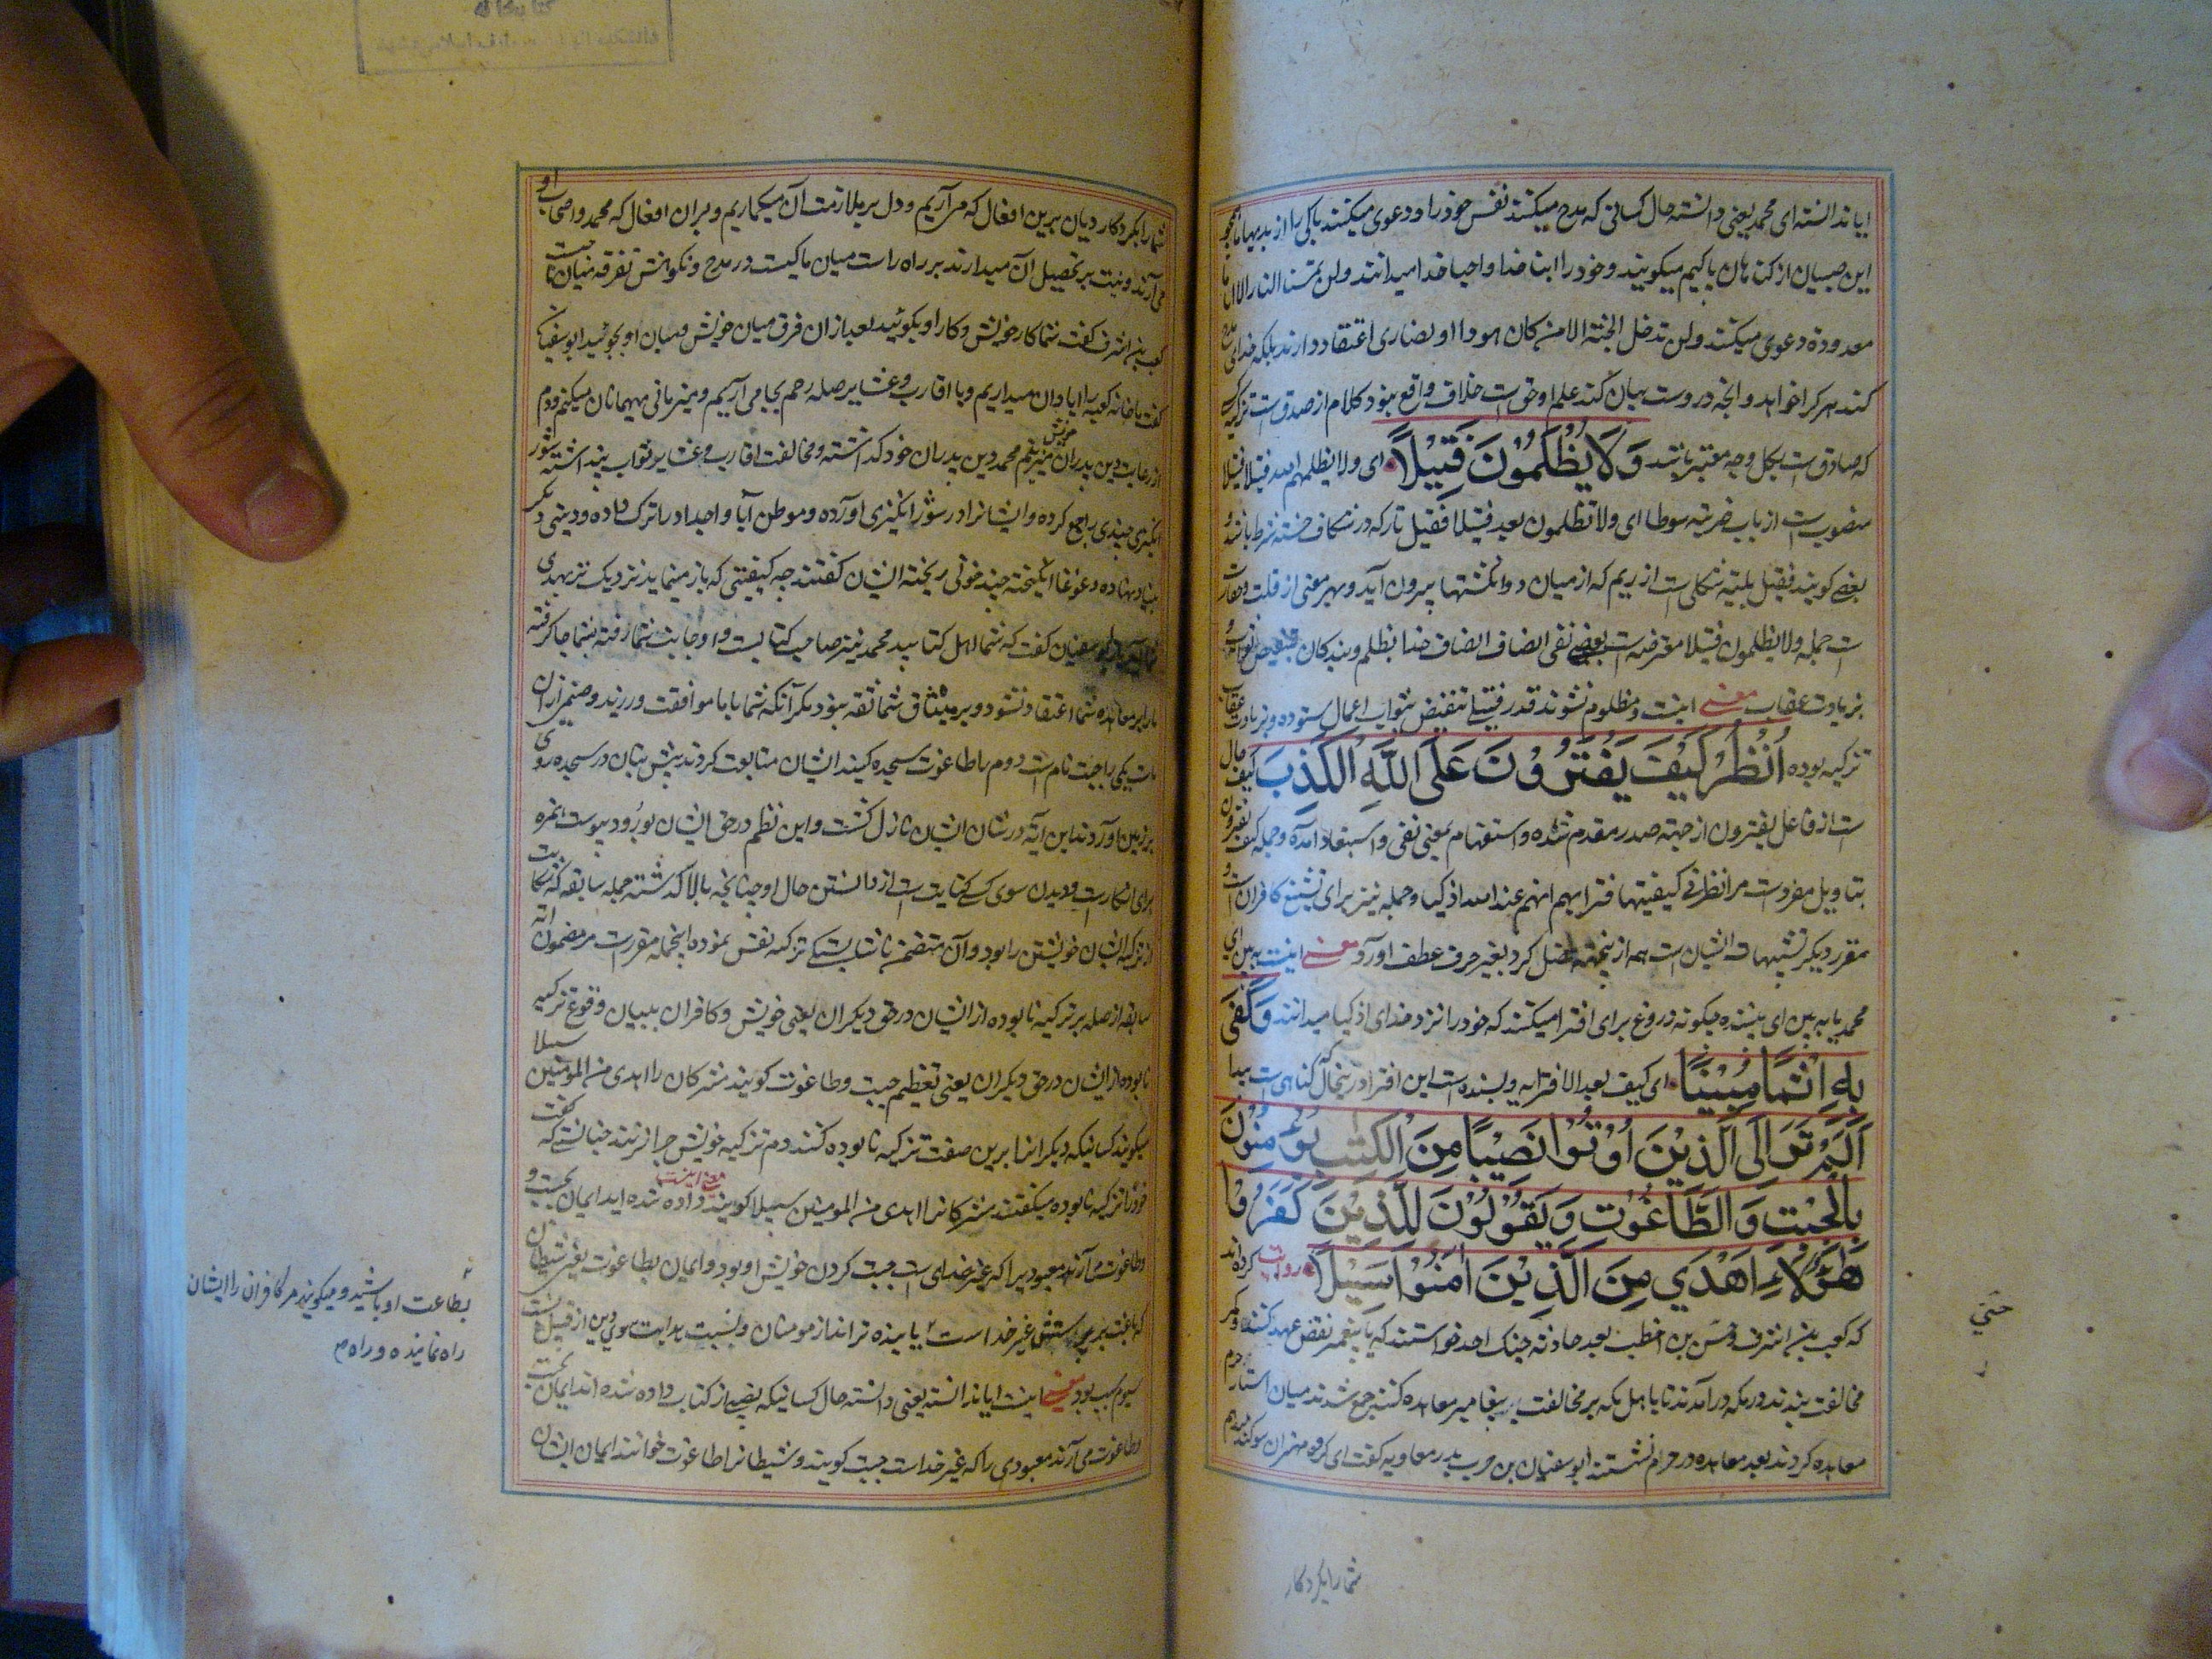 ایا ندانسته ای محمد یعنی دانسته حال کسانی که مدح میکنند نفس خود را و دعوی میکنند پاکی را از بدیها
این صبیان از کناهان پاکیم میکویند و خود را ابنا خدا و احبا خدا میدانند و لن تمسنا النار الا ایاما
معدودة دعوی میکنند و لن تدخل الجنة الا من کان هودا او نصاری اعتقاد دارند بلکه خدای مدح
کند هر کرا خواهد و انچه در وست بیان کند علم او حق است خلاف واقع نبود کلام از صدق است تزکیه
که صادق است بکل وجه معتبر باشد وَلَا يُظْلَمُوْنَ فَتِيْلًا ای ولا یظلمهم الله فتیلا
منصوب است از باب ضربته سوطا ای ولا تظلمون بعد فتیلا فتیل تارکه در شکاف خسته خرما باشد و
بعضے کویند فتیل بلیته شکلی است از ریم که از میان دو انکشتها بیرون آید و بهر معنی از قلت و حقارت
است جمله ولا یظلمون فتیلا معترضه است بعضے نفی انصاف خدا بظلم و بندکان
بزیادت عقاب معنے اینست و مظلوم نشوند قدر فتیلے تنقیص ثواب اعمال ستوده و زیادت عقاب
تزکیه بوده اُنْظُرْ كَيْفَ يَفْتَرُوْنَ عَلَى اللّٰهِ الْكَذِبَ کیف حال
است از فاعل یفترون از جهة صدر مقدم شده و استفهام بمعنی نفی و استبعاد آمده و جمله کیف یفترون
بتاویل مفردست مر انظر فی کیفیتها افترایهم انهم عند الله اذکیا و جمله نیز برای تشنیع کافران است و
مقرر دیکر تشبیهات ایشان است هم از ینجهته فصل کرد بغیر حرف عطف آورد معنے اینست ببین ای
محمد یا ببین ای بیننده چکونه دروغ برای افترا میکنند که خود را نزد خدای اذکیا میدانند وَكَفٰى
بِهٖ اِثْمًا مُبِيْنًا ای کیف بعد الافترا به و بسنده است این افترا در ینحال که کناهی است پیدا
اَلَمْ تَرَ اِلَى الَّذِيْنَ اُوْتُوْا نَصِيْبًا مِنَ الْكِتٰبِ يُؤْمِنُوْنَ
بِالْجِبْتِ وَالطَّاغُوْتِ وَيَقُوْلُوْنَ لِلَّذِيْنَ كَفَرُوْا
هٰؤُلَاءِ اَهْدٰي مِنَ الَّذِيْنَ اٰمَنُوْا سَبِيْلًا روایت کرده اند
که کعب بن اشرف و حسن بن اخطب بعد حادثه جنک احد خواستند که با پیغمبر نقض عهد کنند و کمر
مخالفت بندند در مکه در آمدند تا با اهل مکه بر مخالفت پیغامبر معاهده کنند جمع شدند میان استار حرم
معاهده کردند بعد معاهده در حرم نشستند ابو سفیان بن حرب پدر معاویه کفت ای کروه مهتران سوکند میدهم
حتی
شما را بکردکار
شما را بکردکار دیان برین افعال که سر آریم و دل بر ملازمت آن میکماریم و بران افعال که محمد و اصحاب او
می آرند و نیت بر تحصیل آن میدارند بر راه راست میان ما کیست در مدح و نکوهش تفرقه میان ما چیست
کعب بن اشرف کفت شما کار خویش و کار او بکوئید بعد ازان فرق میان خویش و میان او بجوئید ابو سفیان
کفت ما خانه کعبه را ابادان میداریم و با اقارب و عشایر صله رحم بجا می آریم و نیز باقی مهمانان میکنیم و دم
از رعایت دین پدران میزنیم محمد دین پدران خود کذاشته و مخالفت اقارب و عشایر ثواب پنداشته شور
انکیزی چندی را جمع کرده و ایشانرا در شور انکیزی آورده و موطن آبا و اجداد را ترک داده و دینی دیکر
بنیاد نهاده و غوغا انکیخته چند خونی ریخته ایشان کفتند چه کیفیتی که باز مینماید نزدیک تر بهدی
ابو سفیان کفت که شما اهل کتابید محمد نیز صاحب کتابست و او جانب شما رفته بشما جا کرفته
ما را بر معاهده شما اعتقاد نشود و بر میثاق شما ثقه نبود مکر آنکه شما با ما موافقت ورزید و صنمی ازان
ماست یکی را جبت نام است دوم را طاغوت سجده کنید ایشان متابعت کردند پیش بتان در سجده روی
بر زمین آوردند این آیة در شان ایشان نازل کشت و این نظم در حق ایشان بورود پیوست همزه
برای انکارست و دیدن سوی کسے کنایت است از دانستن حال او چنانچه بالا کذشته جمله سابقه که
از تزکیه ایشان خویشتن را بود و آن متضمن تزکیه نفس نموده اینجمله مقررست مر مضمون
سابقه از صله بر تزکیه نابوده از ایشان در حق دیکران یعنی خویش و کافران ببیان وقوع تزکیه
نابوده از ایشان در حق دیکران یعنی تعظیم جبت و طاغوت کویند مشرکان را اهدی من المومنین سبیلا
میکویند کسانیکه دیکرانرا برین صفت تزکیه نابوده کنند دم تزکیه خویش چرا نزنند چنانستے که کفت
خود را تزکیه نابوده میکفتند مشرکانرا اهدی من المومنین سبیلا کویند معنے اینست داده شده اید ایمان بجبت و
و طاغوت می آرند معبودیرا که غیر خدای است جبت کردن خویش او بود و ایمان بطاغوت یعنی شیطان
که باعث بر پرستش غیر خداست یا بینده تر انداز مومنان و نسبت هدایت سوی دین از قبیل نسبت
سیوم سبب بود معنے اینست ایا ندانسته یعنی دانسته حال کسانیکه نصیبے از کتاب داده شده اند ایمان بجبت
و طاغوت می آرند معبودی را که غیر خداست جبت کویند و شیطانرا طاغوت خوانند ایمان ایشان
بطاعت او باشید و میکویند مر کافران را ایشان
راه نماینده و راه م